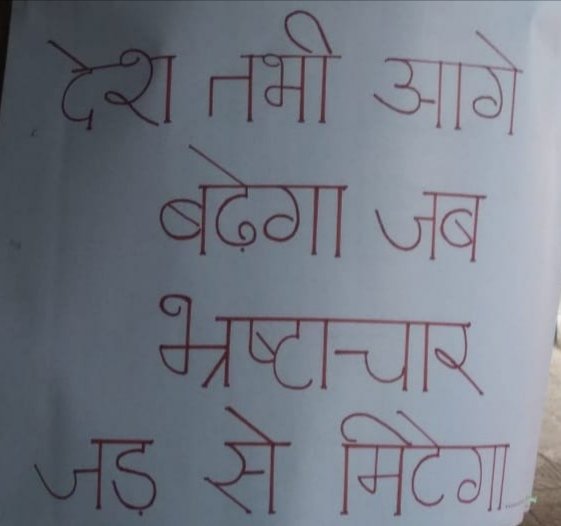 देश तभी आगे
बढ़ेगा जब
भ्रष्टाचार
जड़ से मिटेगा